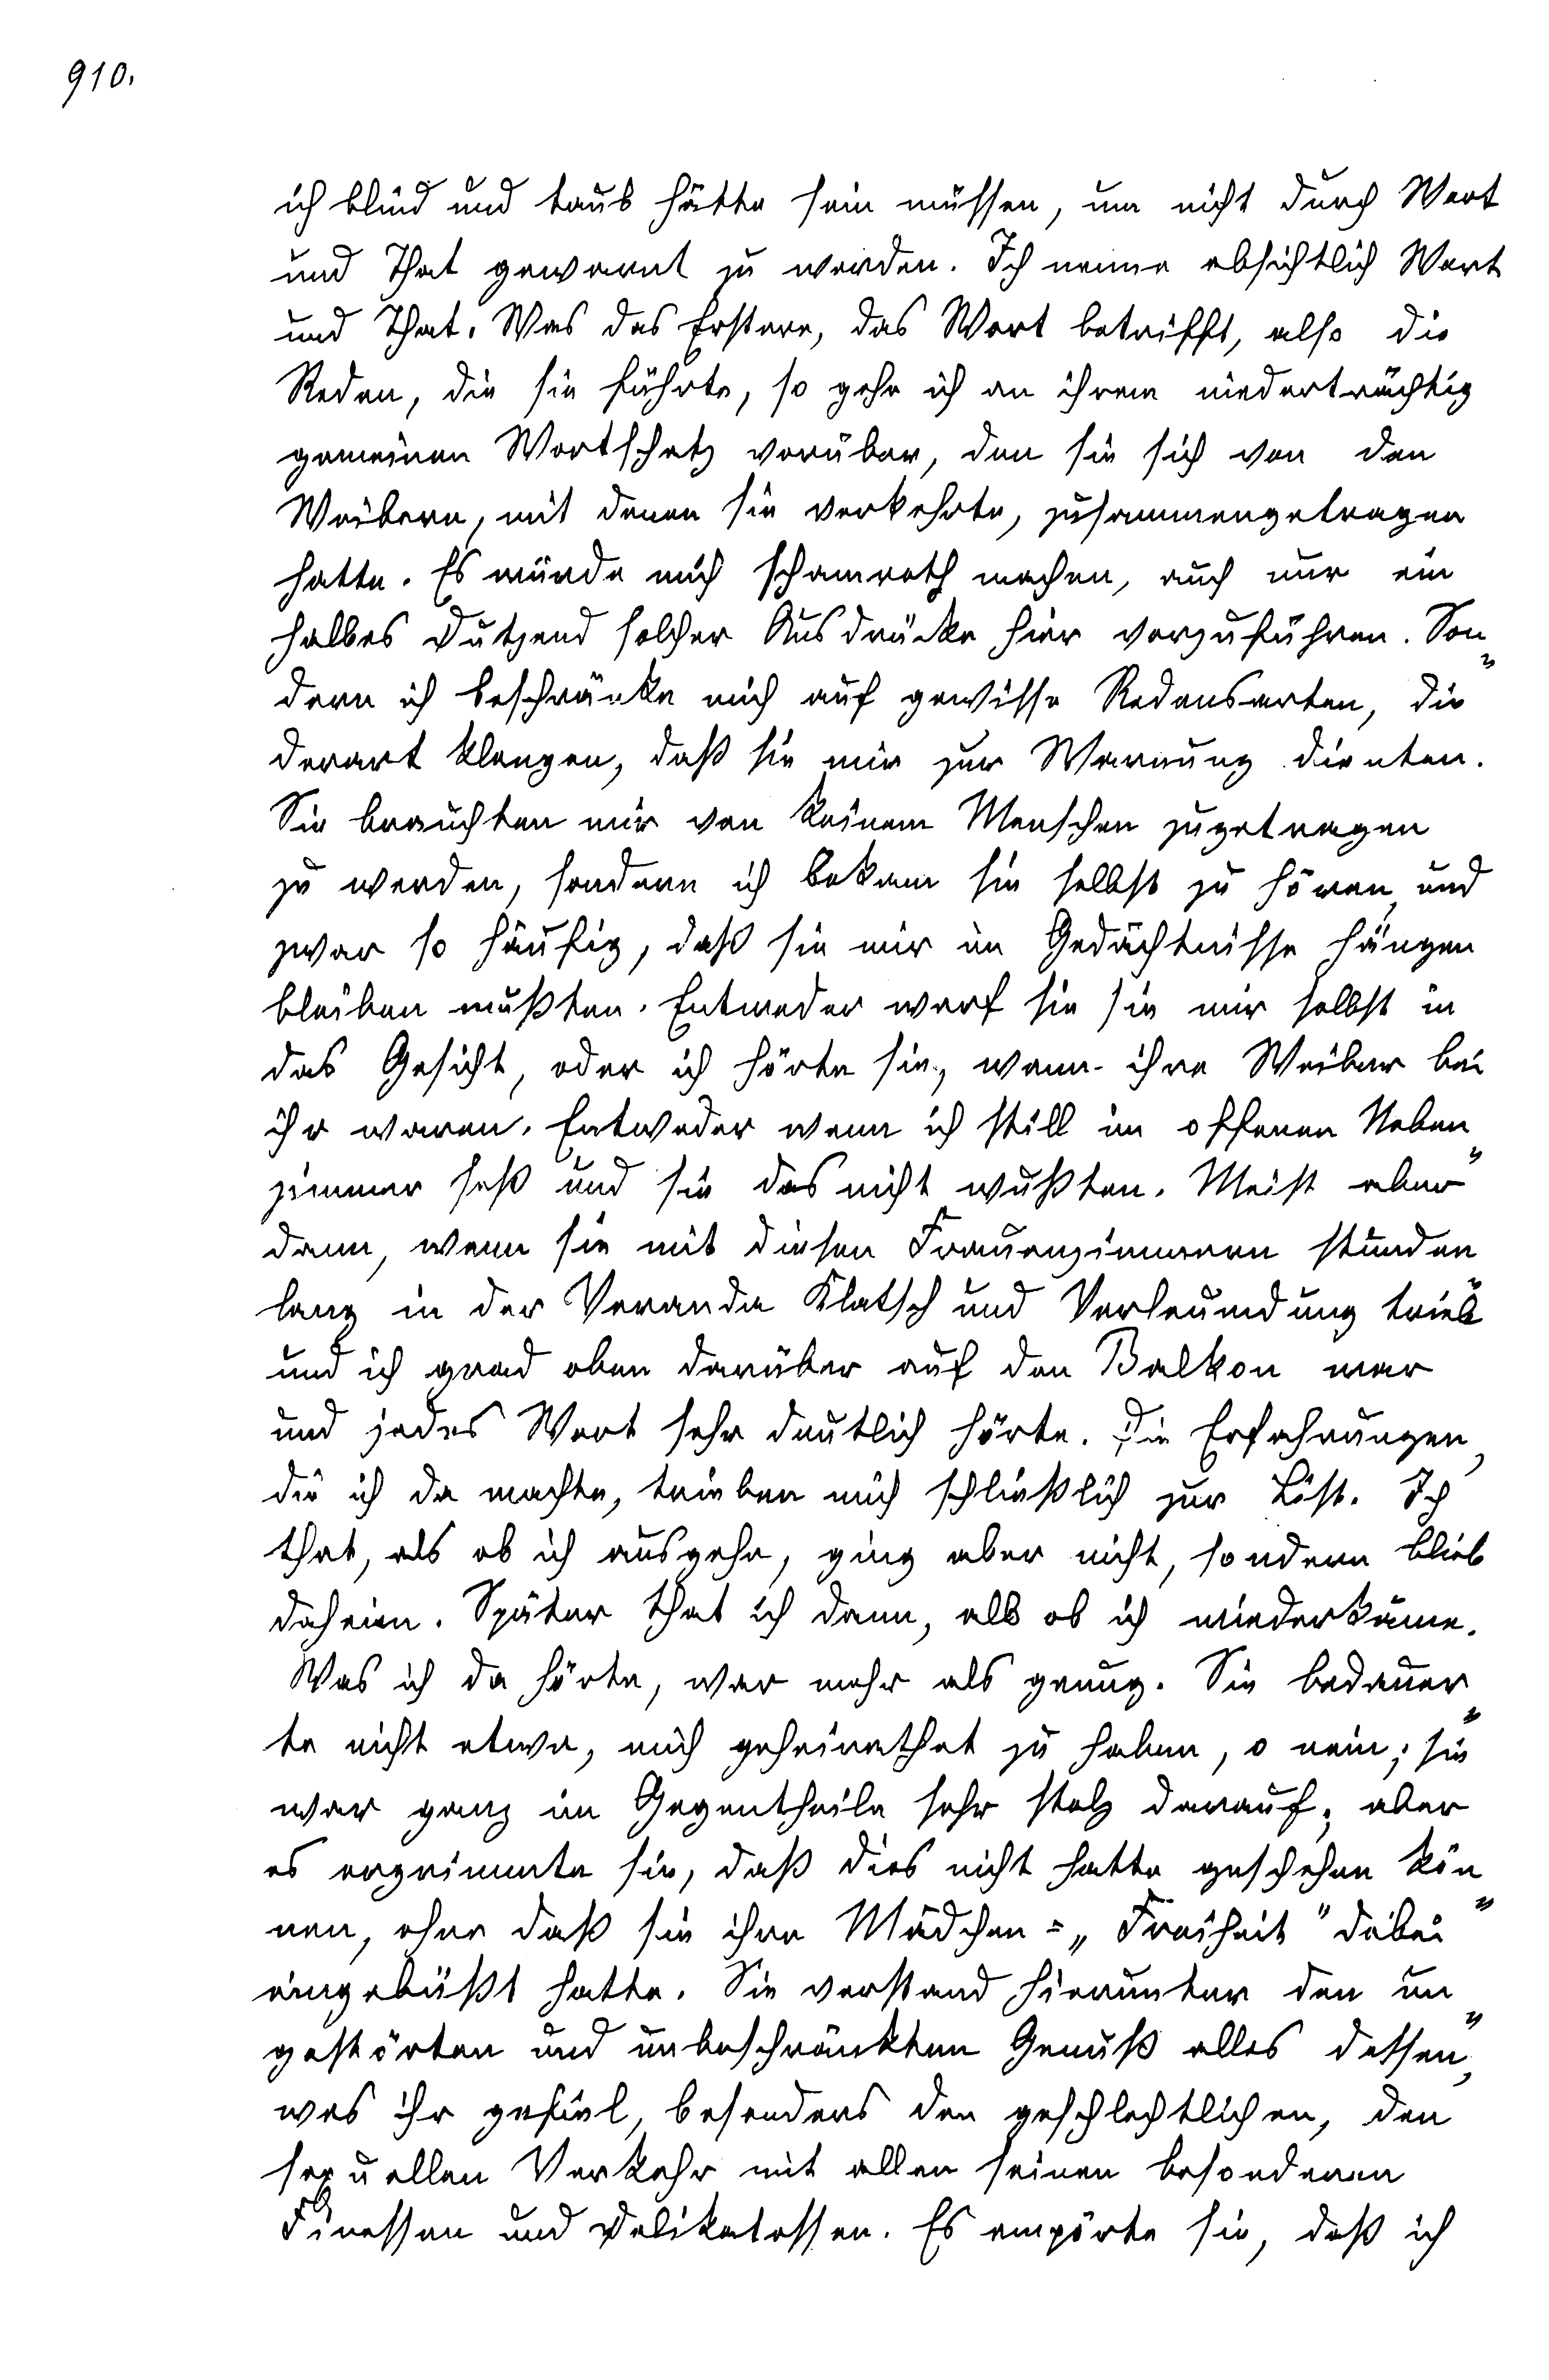 910.
ich blind und taub hätte sein müssen, um nicht durch Wort
und That gewarnt zu werden. Ich nenne absichtlich Wort
und That. Was das Erstere, das Wort betrifft, also die
Reden, die sie führte, so gehe ich an ihrem niederträchtig
gemeinen Wortschatz vorüber, den sie sich von den
Weibern, mit denen sie verkehrte, zusammengetragen
hatte. Es würde mich schamroth machen, auch nur ein
halbes Dutzend solcher Ausdrücke hier vorzuführen. Son-
dern ich beschränke mich auf gewisse Redensarten, die
derart klangen, daß sie mir zur Warnung dienten.
Sie brauchten mir von keinem Menschen zugetragen
zu werden, sondern ich bekam sie selbst zu hören, und
zwar so häufig, daß sie mir im Gedächtnisse hängen
bleiben mußten. Entweder warf sie sie mir selbst in
das Gesicht, oder ich hörte sie, wenn ihre Weiber bei
ihr waren. Entweder wenn ich still im offenen Neben-
zimmer saß und sie das nicht wußten. Meist aber
dann, wenn sie mit diesen Frauenzimmern stunden-
lang in der Veranda Klatsch und Verleumdung trieb
und ich grad oben darüber auf den Balkon war
und jedes Wort sehr deutlich hörte. Die Erfahrungen,
die ich da machte, trieben mich schließlich zur List. Ich
that, als ob ich ausgehe, ging aber nicht, sondern blieb
daheim. Später that ich dann, als ob ich wiederkäme.
Was ich da hörte, war mehr als genug. Sie bedauer-
te nicht etwa, mich geheirathet zu haben, o nein; sie
war ganz im Gegentheile sehr stolz darauf; aber
es ergrimmte sie, daß dies nicht hatte geschehen kön-
nen, ohne daß sie ihre Mädchen-„Freiheit" dabei
eingebüßt hatte. Sie verstand hierunter den un-
gestörten und unbeschränkten Genuß alles dessen,
was ihr gefiel, besonders den geschlechtlichen, den
sexuellen Verkehr mit allen seinen besonderen
Finessen und Delikatessen. Es empörte sie, daß ich